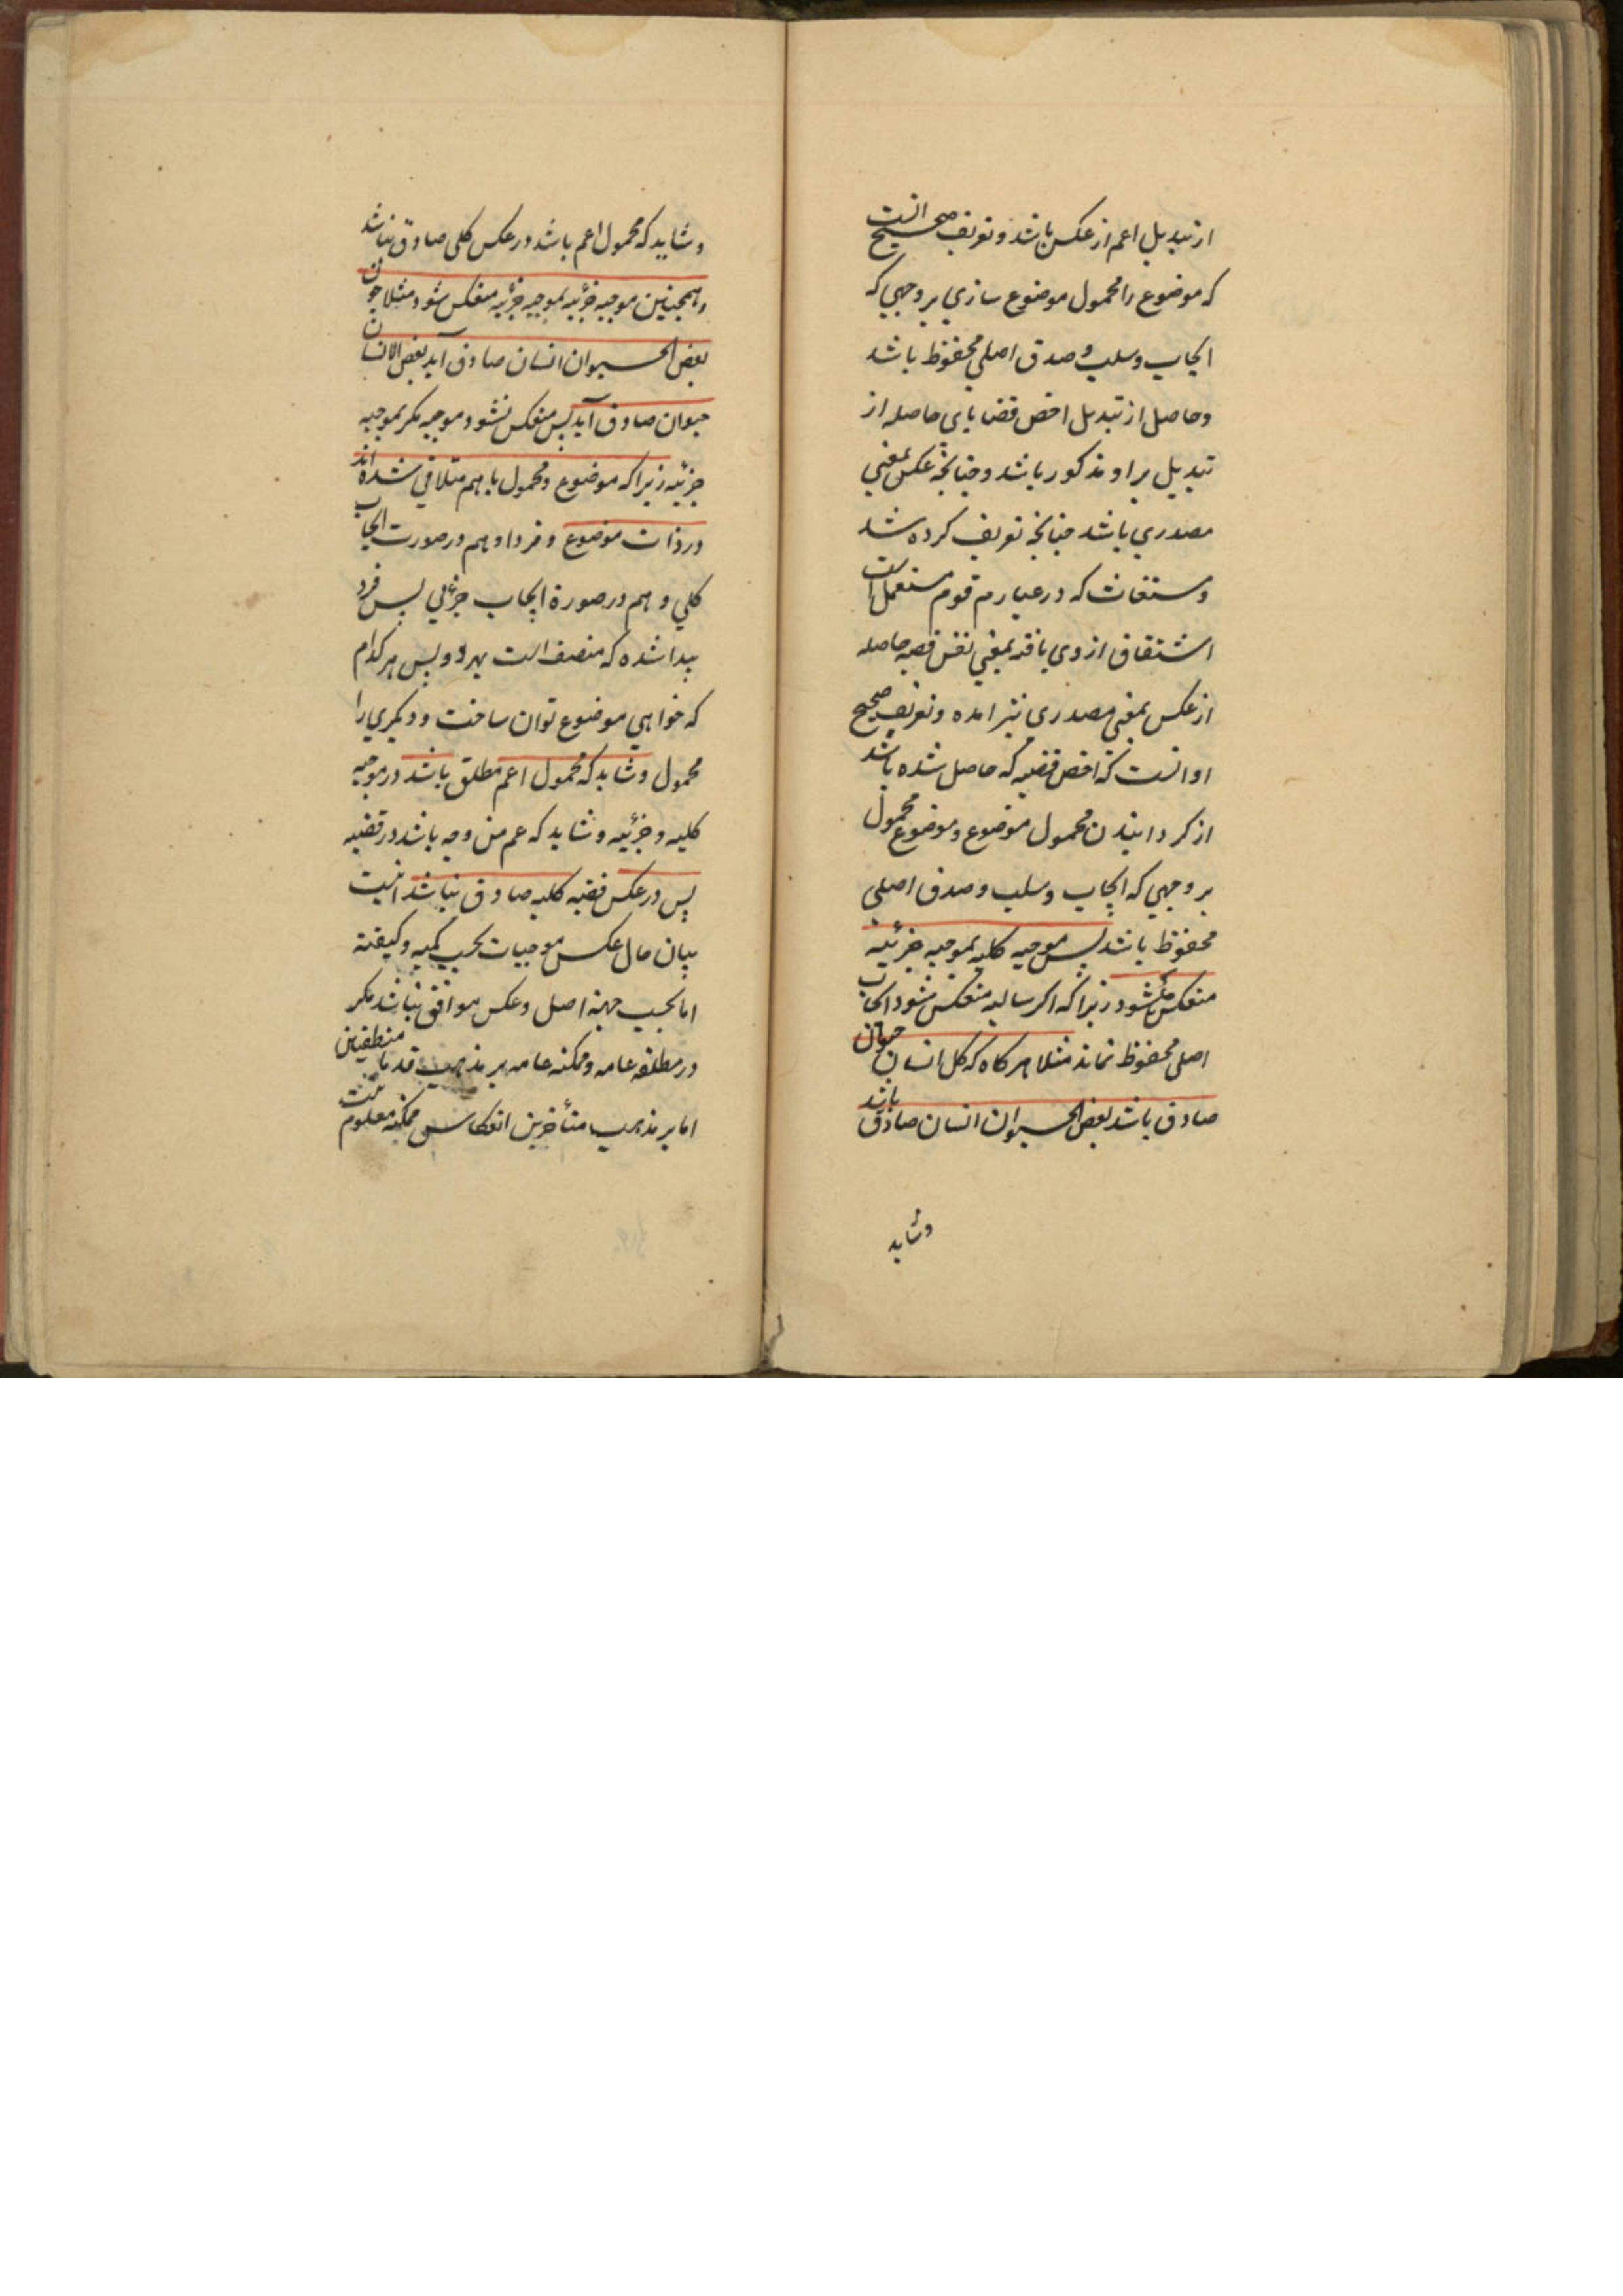 از تبدیل اعم از عکس باشد و تعریف صحیح انست
که موضوع را محمول موضوع سازی بر وجهی که
ایجاب و سلب و صدق اصلی محفوظ باشد
و حاصل از تبدیل اخص قضایای حاصله از
تبدیل بر او مذکور باشد و چنانچه عکس بمعنی
مصدری باشد چنانچه تعریف کرده شد
و مشتقات که در عبارت قوم مستعمل است
اشتقاق از وی یافته بمعنی نفس قضیه حاصله
از عکس بمعنی مصدری نیز امده و تعریف صحیح
او انست که اخص قضیه که حاصل شده باشد
از کردانیدن محمول موضوع و موضوع محمول
بر وجهی که ایجاب و سلب و صدق اصلی
محفوظ باشد پس موجبه کلیه بموجبه جزئیه
منعکس شود زیرا که اکر سالبه منعکس شود ایجاب
اصلی محفوظ نماند مثلا هرکاه که کل انسان حیوان
صادق باشد بعض الحیوان انسان صادق باشد
وشاید
وشاید که محمول اعم باشد در عکس کلی صادق نباشد
وهمچنین موجبه جزئیه بموجبه جزئیه منعکس شود مثلا چون
بعض الحیوان انسان صادق آید بعض الانسان
حیوان صادق آید پس منعکس نشود موجبه مکر بموجبه
جزئیه زیرا که موضوع و محمول با هم متلاقی شده اند
در ذات موضوع و فرد او هم در صورت ایجاب
کلی و هم در صورة ایجاب جزئی پس فرد
پیدا شده که متصف است بهر دو پس هر کدام
که خواهی موضوع توان ساخت و دیکری را
محمول و شاید که محمول اعم مطلق باشد در موجبه
کلیه و جزئیه و شاید که عم من وجه باشد در قضیه
پس در عکس قضیه کلیه صادق نباشد انیست
بیان حال عکس موجبات بحسب کمیه و کیفیة
اما بحسب جهة اصل و عکس موافق نباشد مکر
در مطلقه عامه و ممکنه عامه بر مذهب قدماء منطقیین
اما بر مذهب متأخرین انعکاس ممکنه معلوم نیست